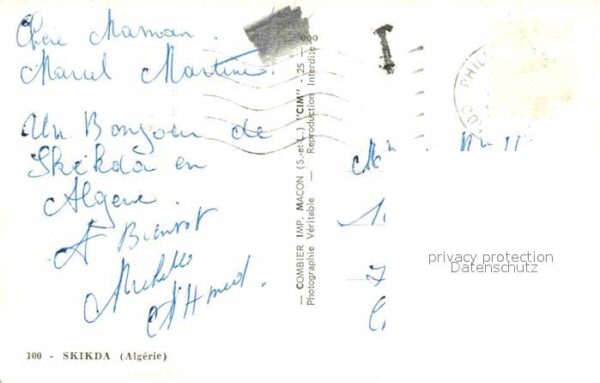 Chère Maman.
Marcel Martine.
Un Bonjour de
Skikda en
Algerie.
A Bientot
Ahmed.
100 - SKIKDA (Algérie)
— COMBIER IMP. MACON (S.-et-L.) "CIM" - 25 -
Photographie Véritable — Reproduction Interdite
T
PHIL
privacy protection
Datenschutz